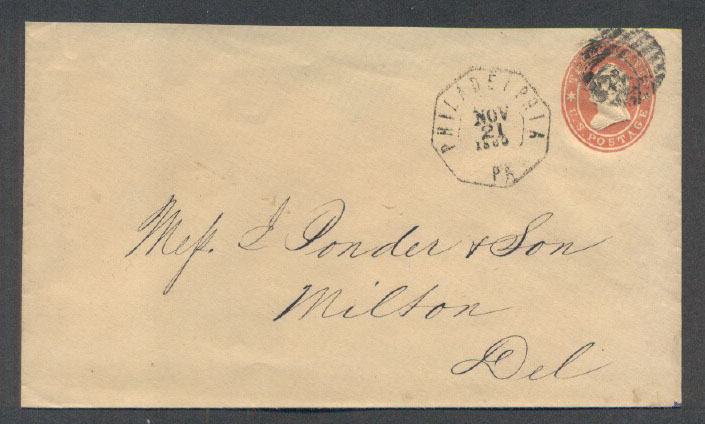 PHILADELPHIA
NOV
21
PA
U.S. POSTAGE
Mess. J Ponder & Son
Milton
Del